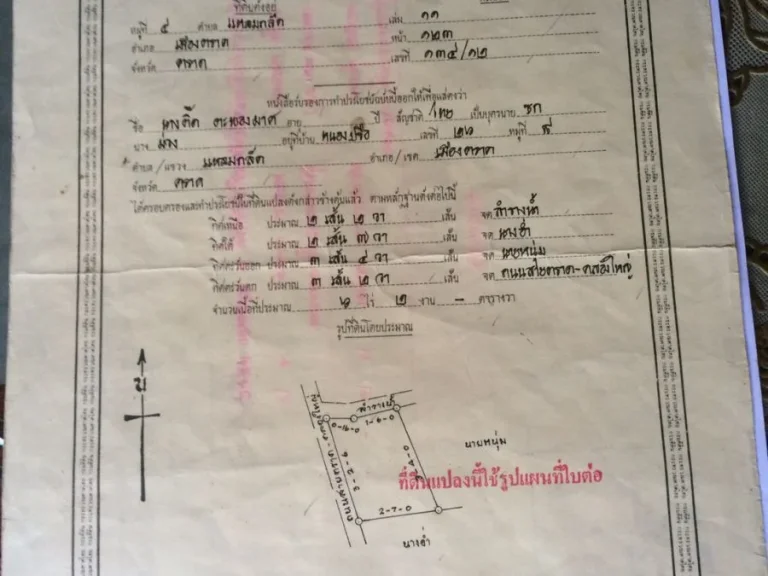 ที่ดินตั้งอยู่
หมู่ที่ ๕ ตำบล แหลมกลัด เล่ม ๑๑
อำเภอ เมืองตราด หน้า ๑๒๓
จังหวัด ตราด เลขที่ ๑๓๕/๑๒
หนังสือรับรองการทำประโยชน์ฉบับนี้ออกให้เพื่อแสดงว่า
ชื่อ อายุ ปี สัญชาติ ไทย เป็นบุตรนาย
นาง อยู่ที่บ้าน เลขที่ ๒๒ หมู่ที่
ตำบล/แขวง แหลมกลัด อำเภอ/เขต เมืองตราด
จังหวัด ตราด
ได้ครอบครองและทำประโยชน์ในที่ดินแปลงดังกล่าวข้างต้นแล้ว ตามหลักฐานดังต่อไปนี้
ทิศเหนือ ประมาณ ๒ เส้น ๒ วา เส้น จด ลำรางน้ำ
ทิศใต้ ประมาณ ๒ เส้น ๗ วา เส้น จด นางฮ่ำ
ทิศตะวันออก ประมาณ ๓ เส้น ๔ วา เส้น จด นายหนุ่ม
ทิศตะวันตก ประมาณ ๓ เส้น ๒ วา เส้น จด ถนนสายตราด-คลองใหญ่
จำนวนเนื้อที่ประมาณ ๖ ไร่ ๒ งาน - ตารางวา
รูปที่ดินโดยประมาณ
น
ลำรางน้ำ
0-16-0 1-6-0
ถนนสายตราด-คลองใหญ่
3-2-6
นายหนุ่ม
ที่ดินแปลงนี้ใช้รูปแผนที่ใบต่อ
2-7-0
นางฮ่ำ